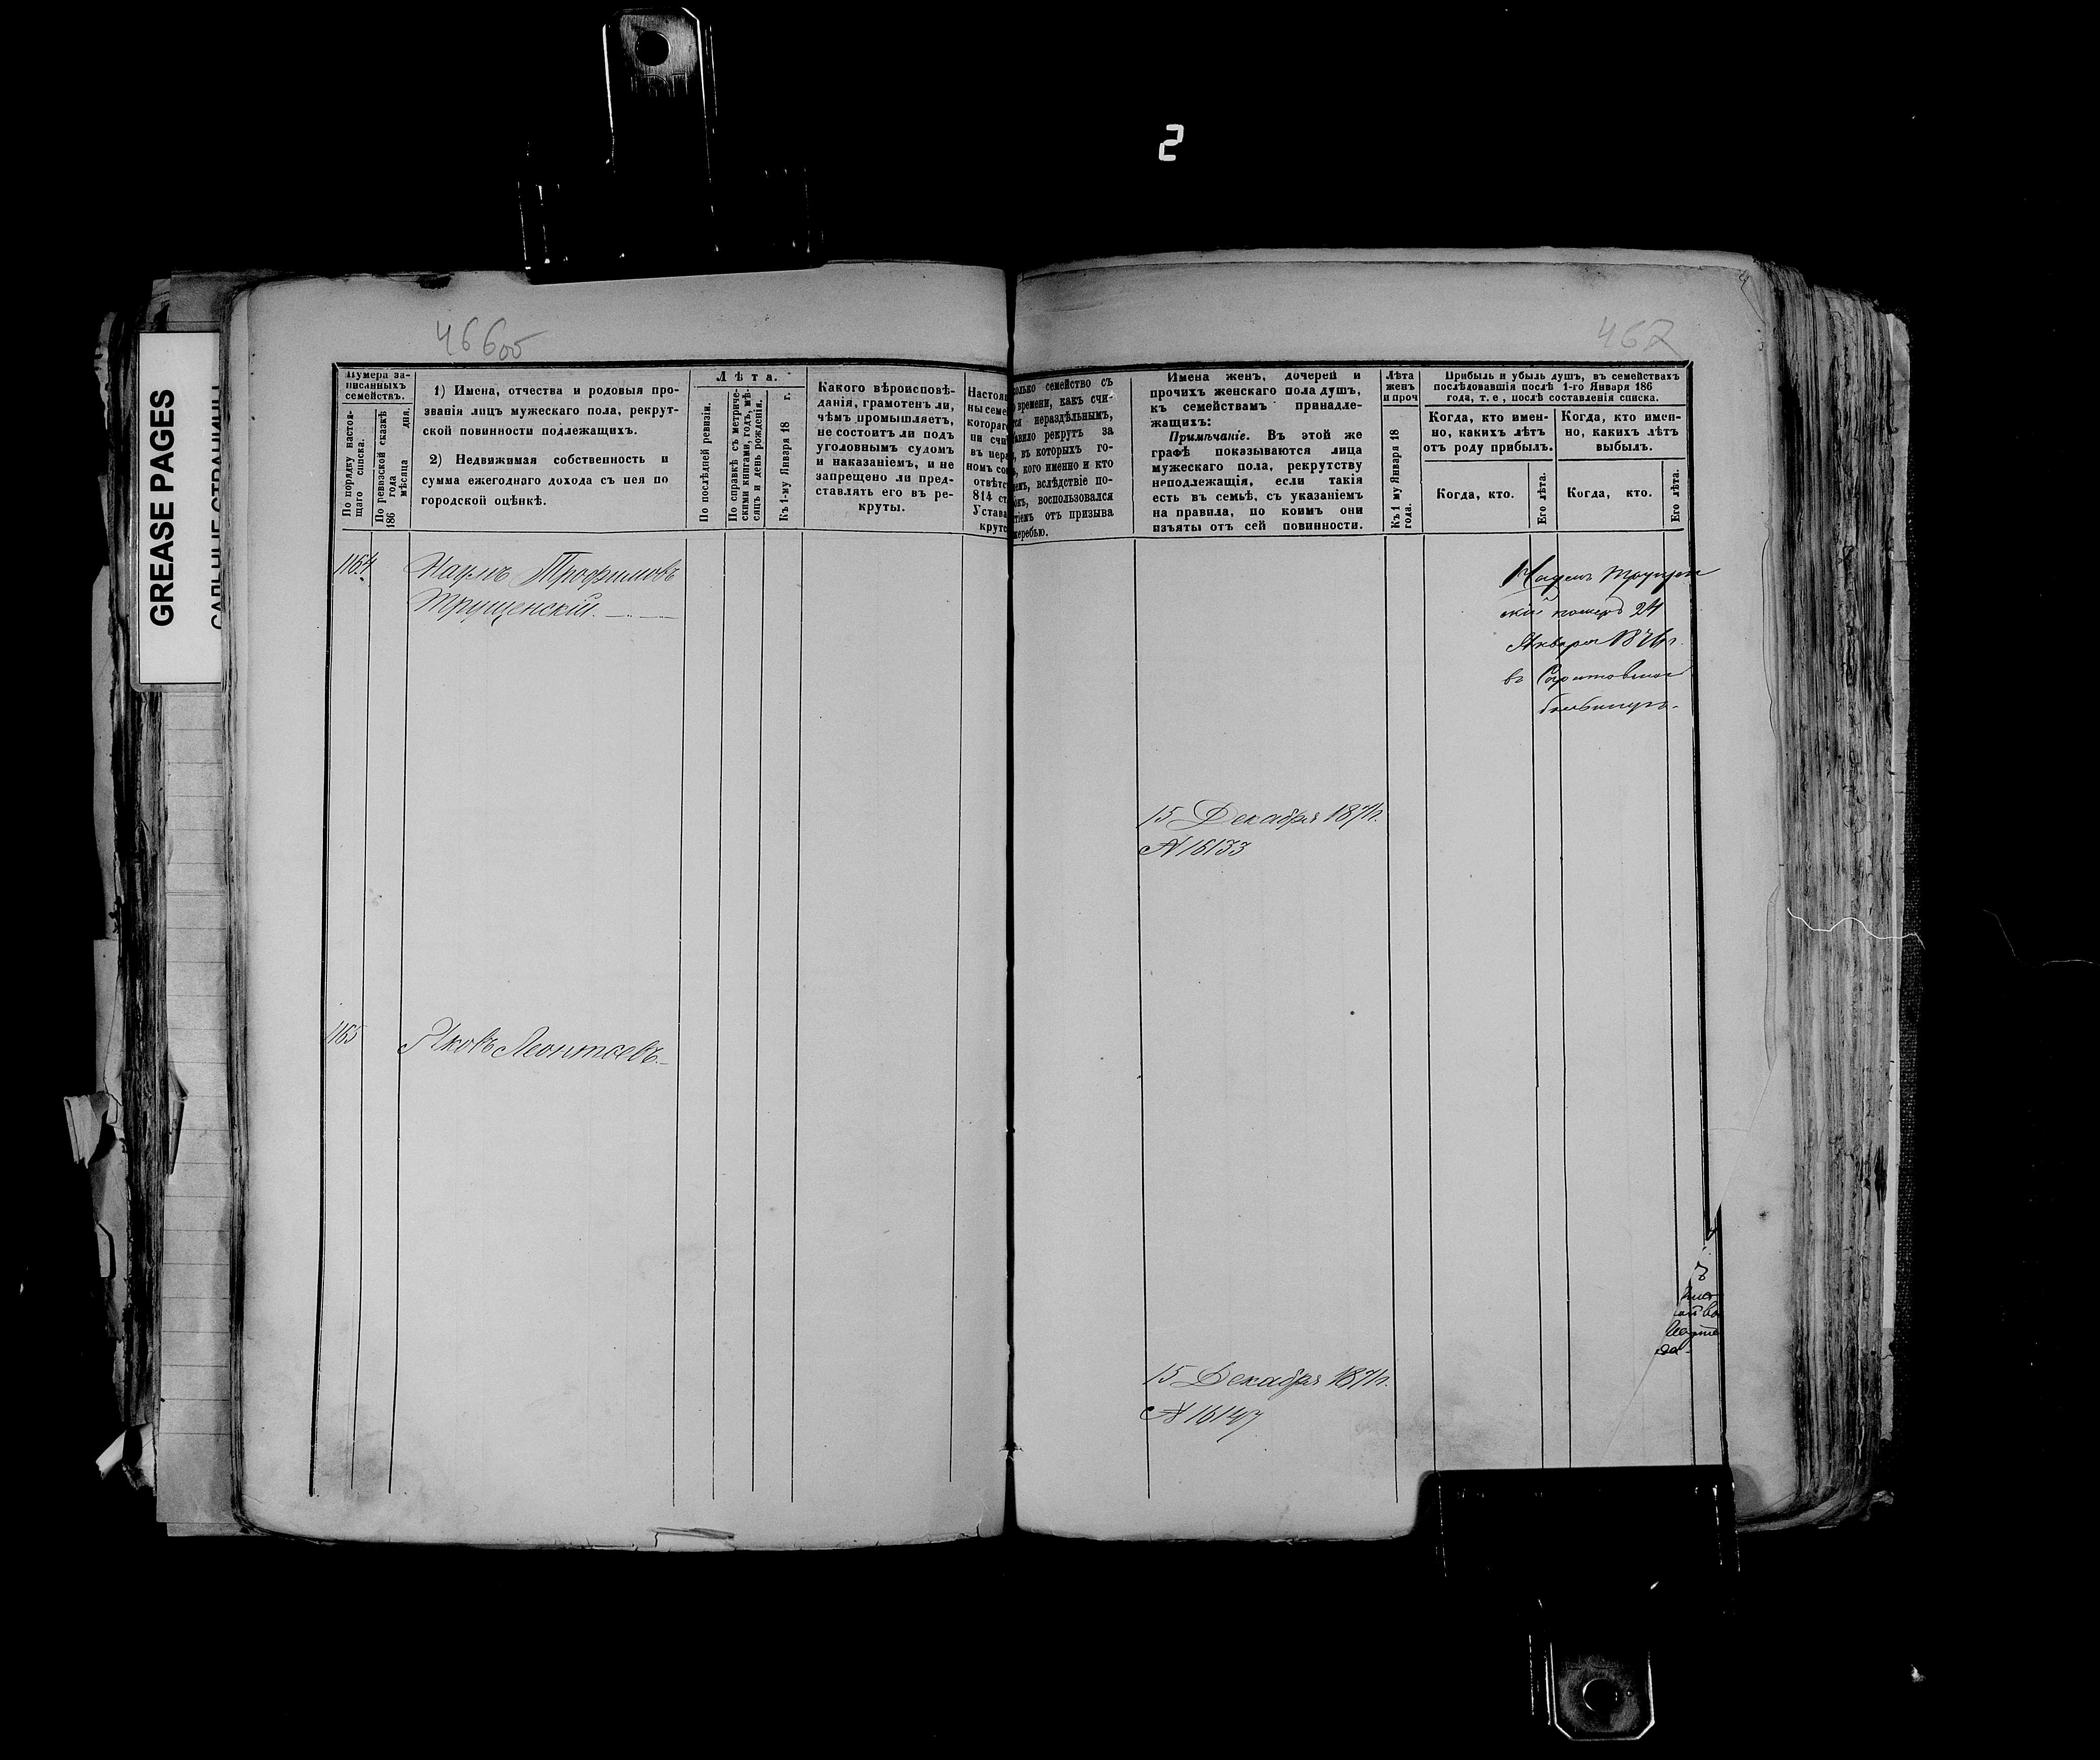 2
GREASE PAGES
САЛЬНЫЕ СТРАНИЦЫ
466об
467
Нумера за-
писанныхъ
семействъ.
По порядку настоя-
щаго списка.
По ревизской сказкѣ
186 года
мѣсяца дня.
1) Имена, отчества и родовыя про-
званія лицъ мужескаго пола, рекрут-
ской повинности подлежащихъ.
2) Недвижимая собственность и
сумма ежегоднаго дохода съ нея по
городской оцѣнкѣ.
Лѣта.
По послѣдней ревизіи.
По справкѣ съ метриче-
скими книгами, годъ, мѣ-
сяцъ и день рожденія.
Къ 1-му Января 18 г.
Какого вѣроисповѣ-
данія, грамотенъ ли,
чѣмъ промышляетъ,
не состоитъ ли подъ
уголовнымъ судомъ
и наказаніемъ, и не
запрещено ли пред-
ставлять его въ ре-
круты.
Настоя
ны семе
котораг
ни счи
въ нера
номъ со
отвѣтс
814 ст
Устава
крутс
колько семейство съ
о времени, какъ счи-
тся нераздѣльнымъ,
авило рекрутъ за
, въ которыхъ го-
ъ, кого именно и кто
емъ, вслѣдствіе по-
окъ, воспользовался
тіемъ отъ призыва
жеребью.
Имена женъ, дочерей и
прочихъ женскаго пола душъ,
къ семействамъ принадле-
жащихъ:
Примѣчаніе. Въ этой же
графѣ показываются лица
мужескаго пола, рекрутству
неподлежащія, если такія
есть въ семьѣ, съ указаніемъ
на правила, по коимъ они
изъяты отъ сей повинности.
Лѣта
женъ
и проч
Къ 1 му Января 18
года.
Прибыль и убыль душъ, въ семействахъ
послѣдовавшія послѣ 1-го Января 186
года, т. е, послѣ составленія списка.
Когда, кто имен-
но, какихъ лѣтъ
отъ роду прибылъ.
Когда, кто.
Его лѣта.
Когда, кто имен-
но, какихъ лѣтъ
выбылъ.
Когда, кто.
Его лѣта.
1164
Наумъ Трофимовъ
Трущенскій.
Наумъ Трущен
скій померъ 24
Января
въ Саратовской
больницѣ.
15 Декабря 1871г.
№ 16133
1165
Яковъ Леонтьевъ.
15 Декабря 1871г.
№ 16147